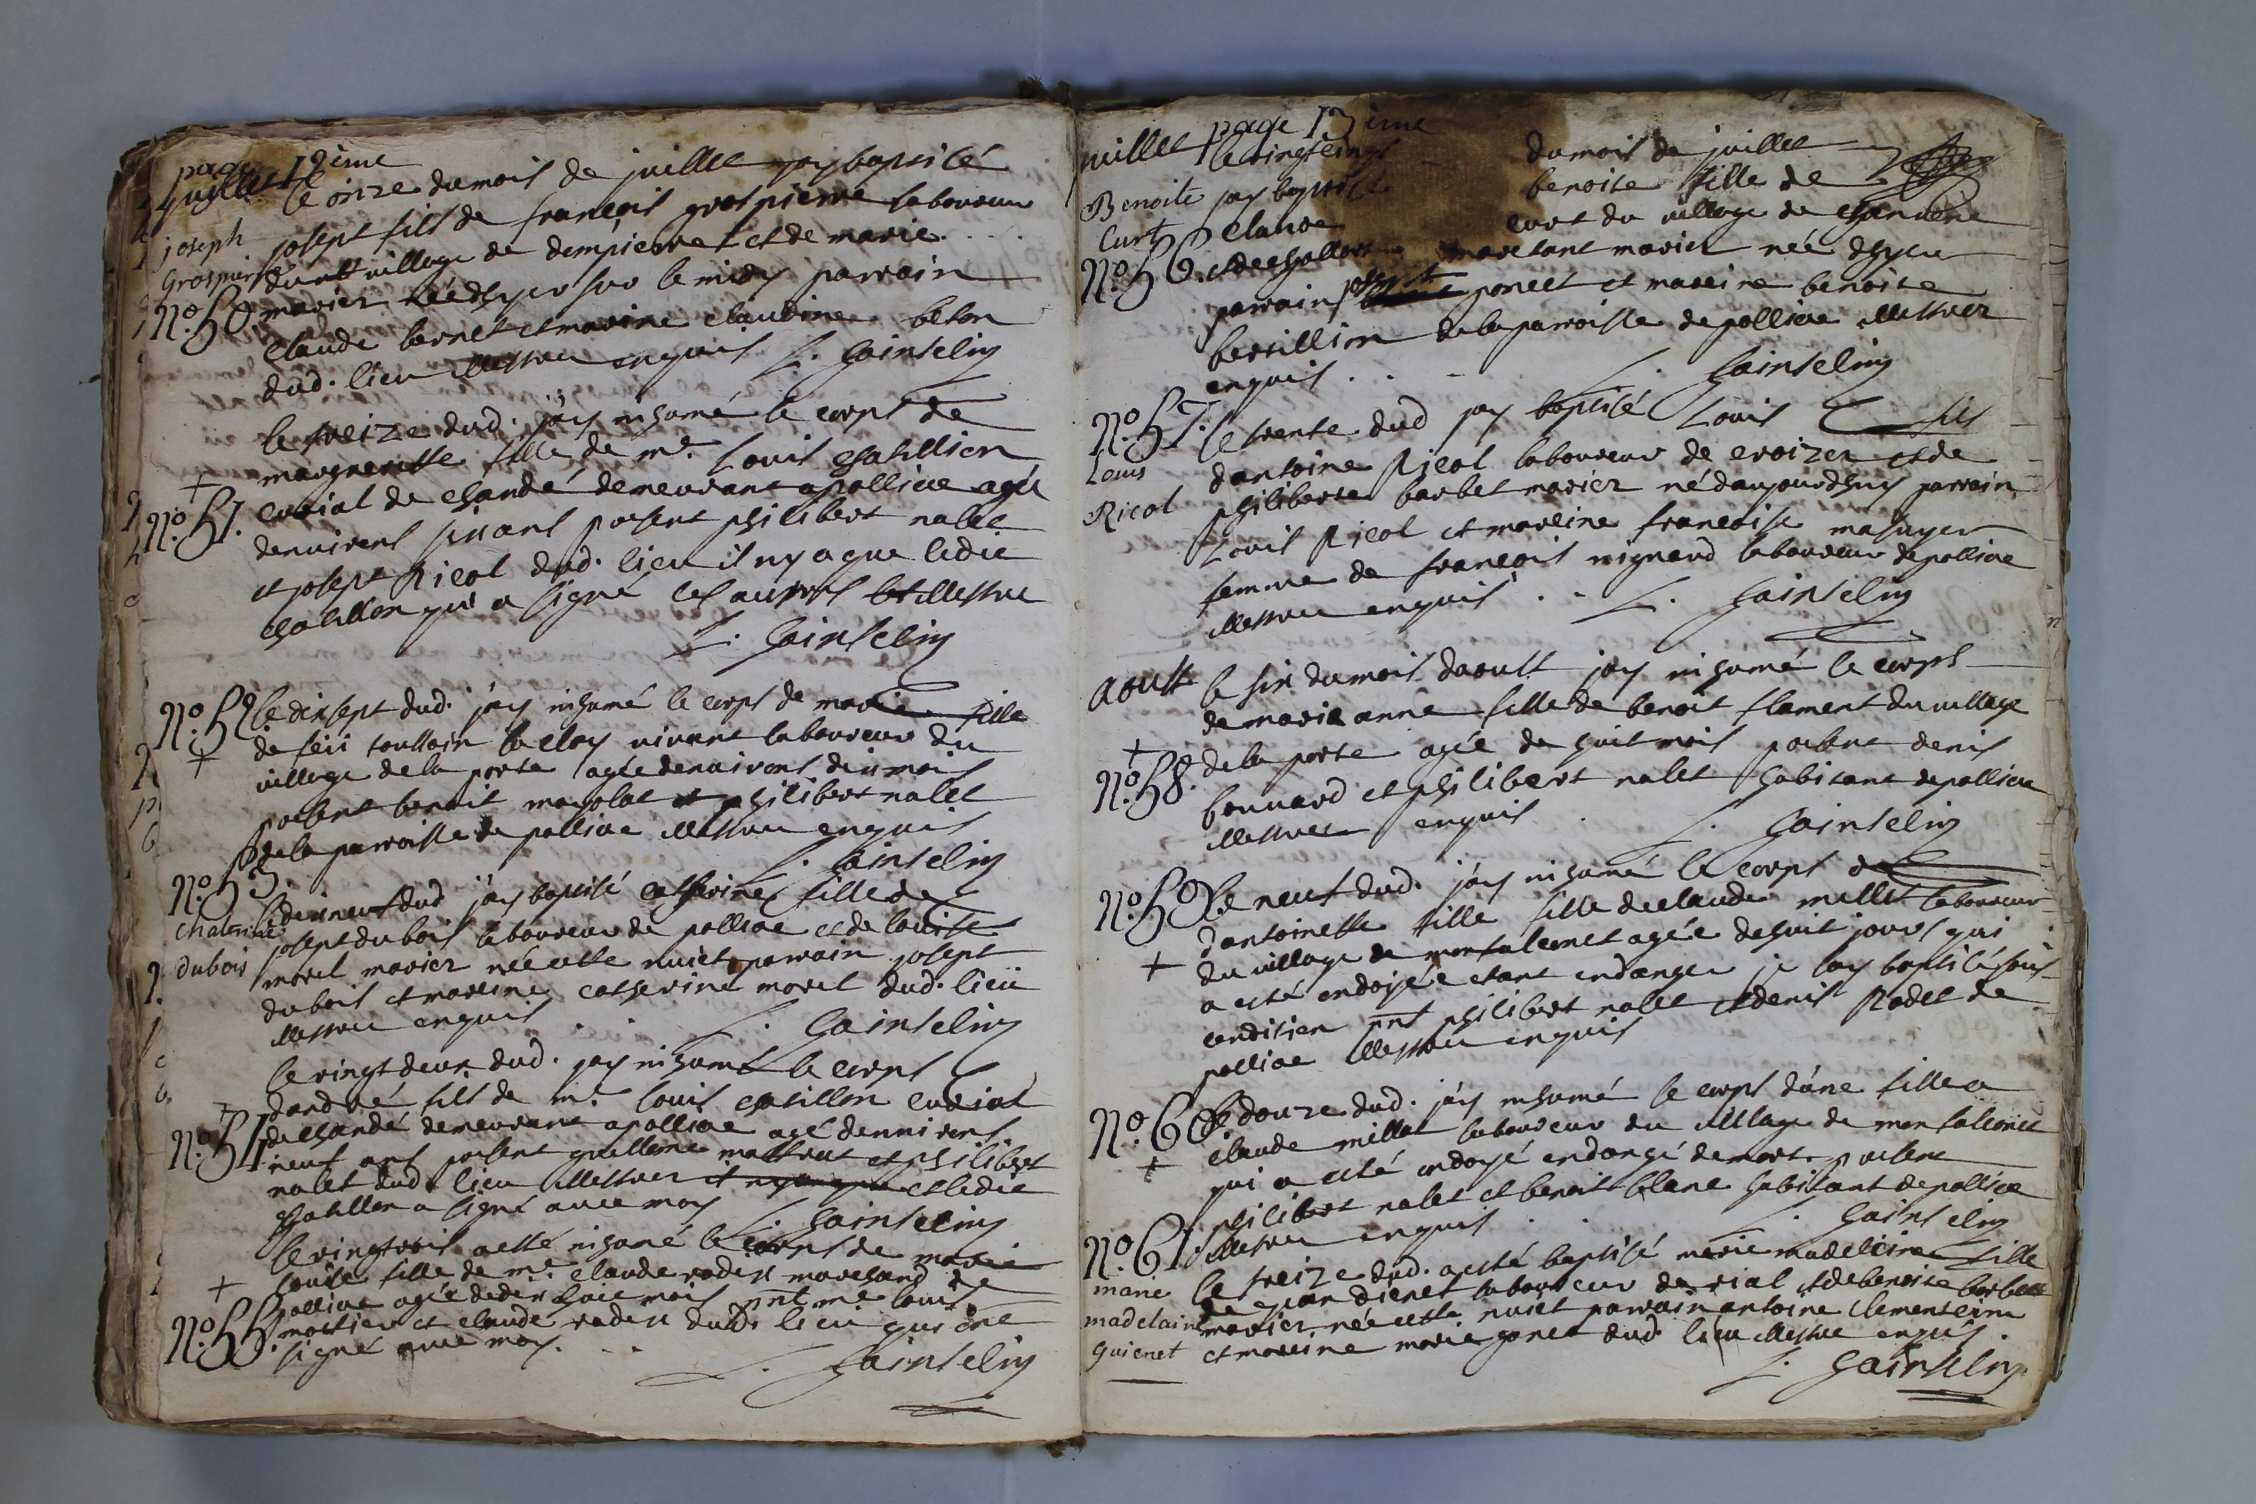 page 12ieme
juillet le onze du mois de juillet jay baptisé
joseph josept fils de françois grospierre laboureur
Grospierre dudt village de dempierre et de marie
N.o 50. marier née dhyer sur le midy parrain
claude bernet et marine claudine beton
dud. lieu illestrée enquis L. Gainselin
le treize dud. jay inhumé le corps de
margueritte fille de mr. Louis chatillion
+
N.o 51. curial de chandé demeurant a polliac agée
denuirons six ans présent philibert nalet
et josept Picol dud. lieu il ny a que ledit
chatillon qui a signé les autres illestrée
L. Gainselin
N.o 52 le dixsept dud. jay inhumé le corps de marie fille
+ de feü toussain la cloy vivant laboureur du
village de la porte agée denuirons dix mois
présent benoit mazolat et philibert nalet
de la parroisse de polliac illestrée enquis
L. Gainselin
N.o 53
le dixneuf dud jay baptisé catherine fille de
chaterine josept dubois laboureur de polliac et de louise
dubois morel marier née cette nuict parrain josept
dubois et marrine catherine morel dud. lieü
illestrée enquis . . L. Gainselin
le vingt deux dud. jay inhumé le corps
dandré fils de mr. Louis chatillon curial
+
N.o 54 de chandé demeurant a polliac agé denuirons
neuf ans présent guillerme mattrat et philibert
nalet dud. lieu illestrée il ny a que et ledit
chatillon a signé avec moy L. Gainselin
le vingtrois a esté inhumé le corps de marie
+ louise fille de mr. claude rodet marchand de
polliac agée de dix huit mois pnt mr. louis
N.o 55. mortier et claude rodet dud. lieu qui ont
signé avec moy. . . L. Gainselin
page 13ieme
juillet le vingtcinq du mois de juillet
Benoite jay baptisé benoite fille de
Curt claude curt du village de chanuent
N.o 56. et de marchant marier née dhyer
parrain josept poncet et mareine benoite
bertillion de la parroisse de polliac illestrée
enquis . . L. Gainselin
N.o 57. le trente dud jay baptisé Louis fils
Louis dantoine Picol laboureur de croizer et de
Ricol philiberte barbet marier né daujourdhuy parrain
Louis Picol et mareine francoise masuyer
femme de françois nignard laboureur de polliac
illestrée enquis . . L. Gainselin
aoust le six du mois daoust jay inhumé le corps
de marie anne fille de benoit flament du village
+
N.o 58. de la porte agée de huit mois présent denis
bouuard et philibert nalet habitant de polliac
illestrée enquis L. Gainselin
N.o 59. le neuf dud. jay inhumé le corps d
dantoinette fille fille declaude millet laboureur
+ du village de montalemet agée de huit jours qui
a esté ondoyée estant endanger je lay baptisé sous
condition pnt philibert nalet et denis Rodet de
polliac illestrée enquis
N.o 60. le douze dud. jay inhumé le corps dune fille a
+ claude millet laboureur du village de montalemet
qui a esté ondoyé endangé de mort présent
philibert nalet et benoit blanc habitant de polliac
illestrée enquis . . L. Gainselin
N.o 61.
le treize dud. a esté baptisé marie madeleine fille
marie de jean dienet laboureur de rial et de benoite barbet
madelaine marier née cette nuict parrain antoine clementcin
guienet et marrine marie gonet dud. lieu illestrée enquis.
L. Gainselin